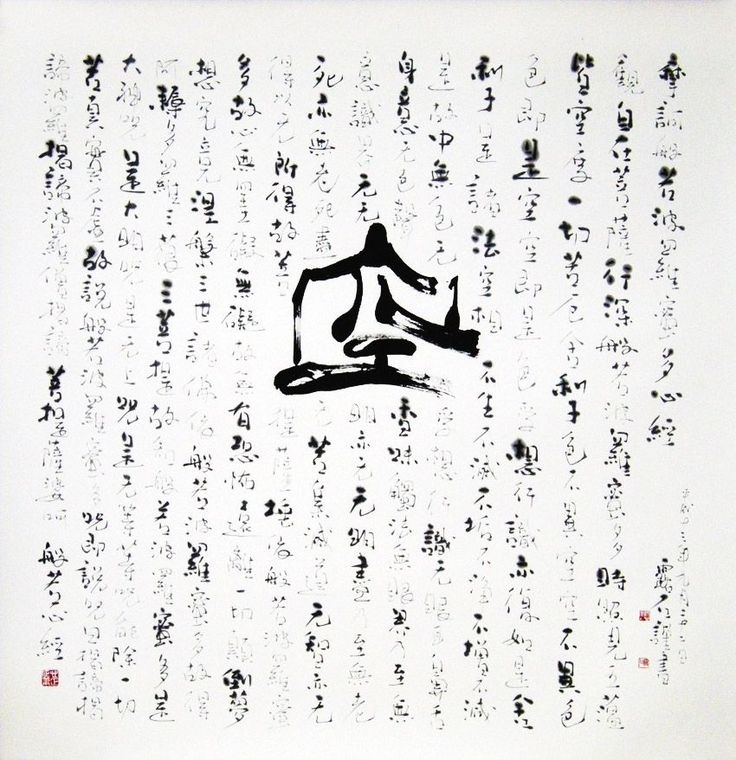 摩訶般若波羅蜜多心經
觀自在菩薩行深般若波羅蜜多時照見五蘊
皆空度一切苦厄舍利子色不異空空不異色
色即是空空即是色受想行識亦復如是舍
利子是諸法空相不生不滅不垢不淨不增不減
是故中無色无受想行識无眼耳鼻舌
身意无色聲香味觸法無眼界乃至無
意識界无无明亦无无明盡乃至無老
死亦無老死盡无苦集滅道无智亦无
得以无所得故菩提薩埵依般若波羅蜜
多故心無罣礙無礙故無有恐怖遠離一切顛倒夢
想究竟涅槃三世諸佛依般若波羅蜜多故得
阿耨多羅三藐三菩提故知般若波羅蜜多是
大神呪是大明呪是无上呪是无等等呪能除一切
苦真實不虛故說般若波羅蜜多呪即說呪曰揭諦揭
諦波羅揭諦波羅僧揭諦菩提薩婆訶 般若心經
空
謹書